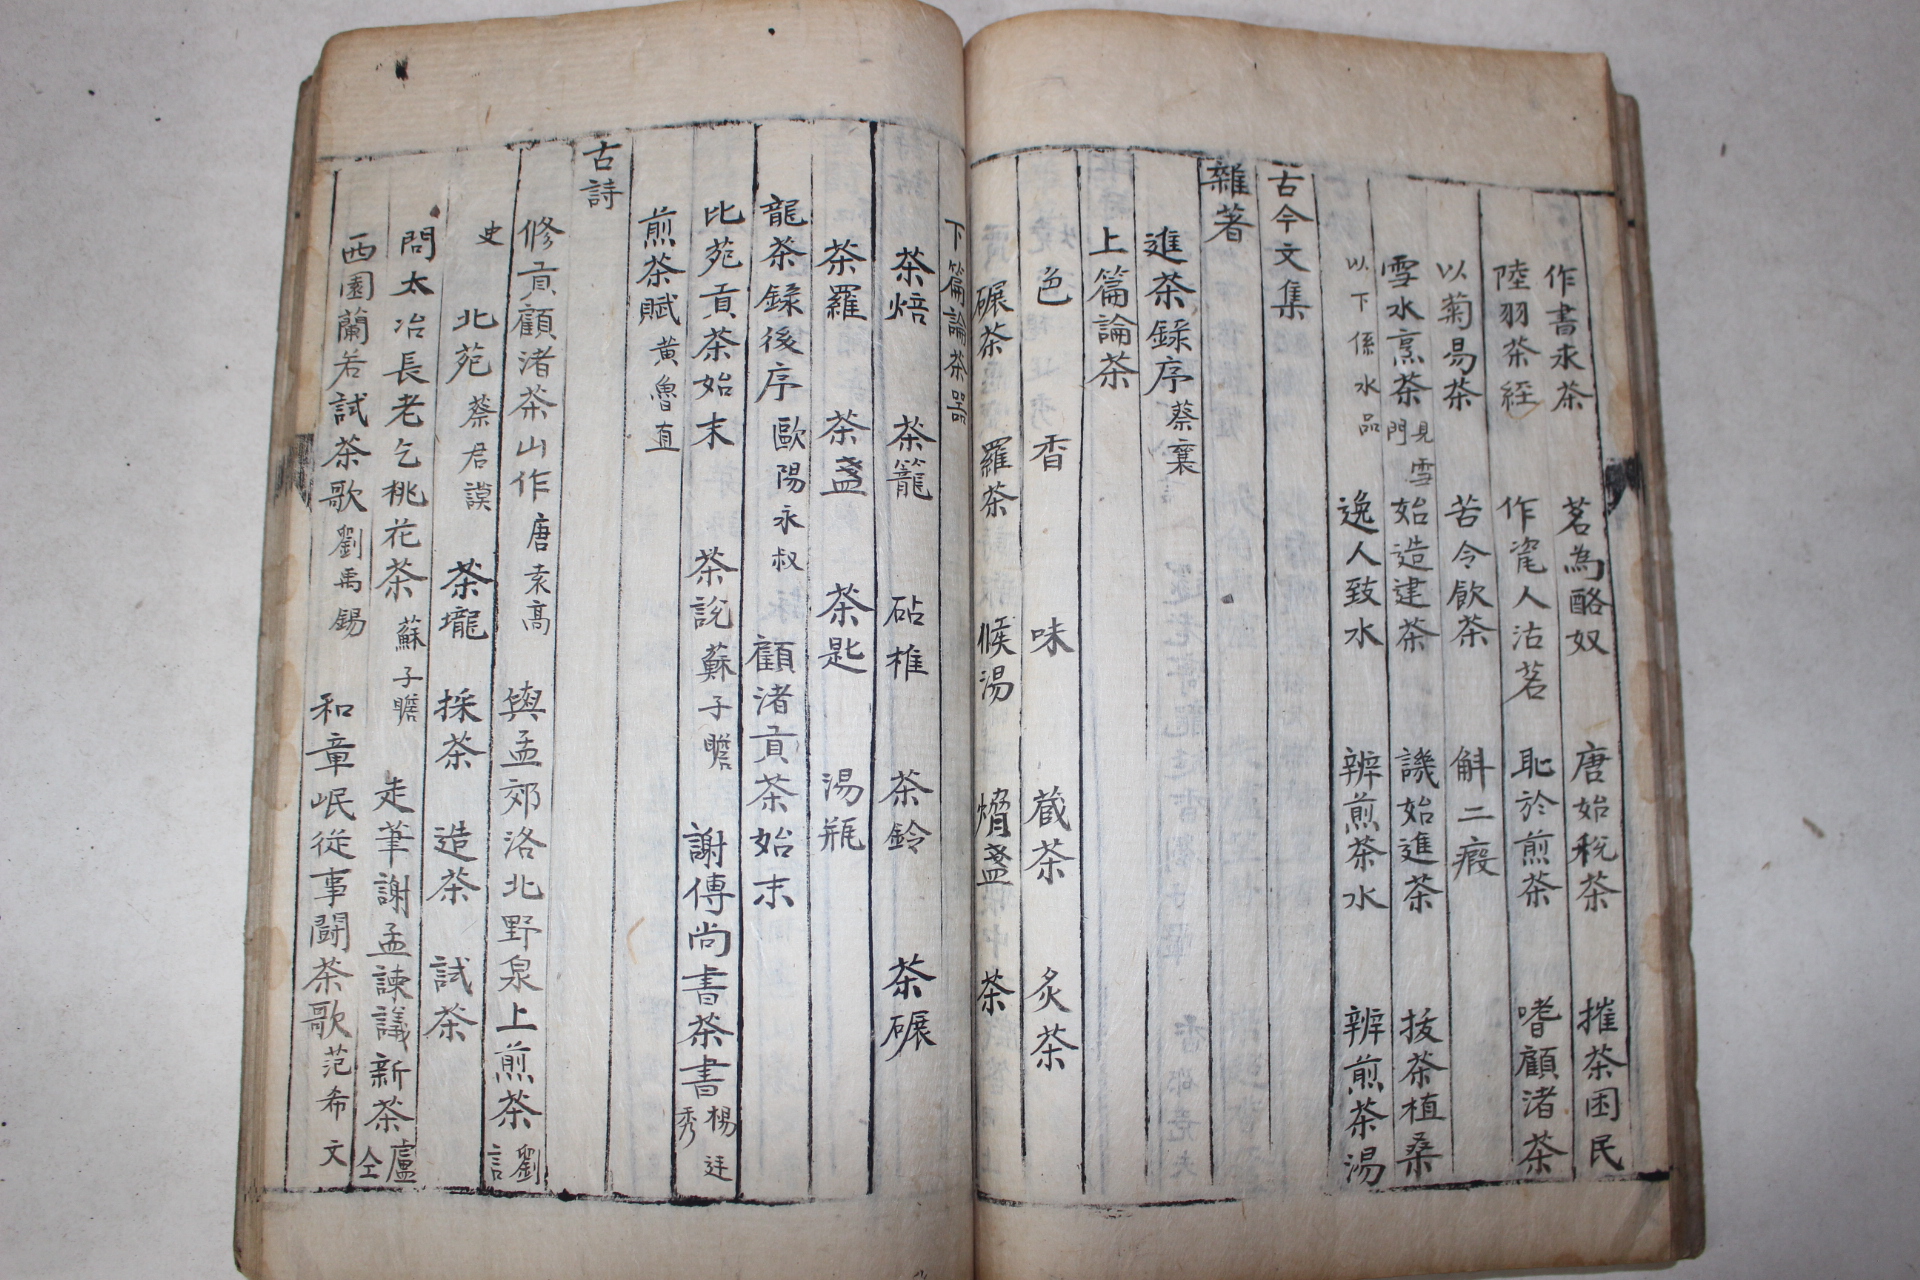 作書求茶 茗為酪奴 唐始稅茶 摧茶困民
陸羽茶經 作瓷人沽茗 恥於煎茶 嗜顧渚茶
以菊易茶 苦令飲茶 斛二瘕
雪水烹茶見雪門 始造建茶 譏始進茶 拔茶植桑
以下係水品 逸人致水 辨煎茶水 辨煎茶湯
古今文集
雜著
進茶録序蔡襄
上篇論茶
色 香 味 蔵茶 炙茶
碾茶 羅茶 候湯 熁盞 茶
下篇論茶器
茶焙 茶籠 砧椎 茶鈴 茶碾
茶羅 茶盞 茶匙 湯瓶
龍茶録後序歐陽永叔 顧渚貢茶始末
北苑貢茶始末 茶説蘇子瞻 謝傅尚書茶書楊廷秀
煎茶賦黄魯直
古詩
修貢顧渚茶山作唐袁髙 與孟郊洛北野泉上煎茶劉言
史 北苑蔡君謨 茶壠 採茶 造茶 試茶
問太冶長老乞桃花茶蘇子瞻 走筆謝孟諫議新茶盧仝
西園蘭若試茶歌劉禹錫 和章岷從事鬪茶歌范希文